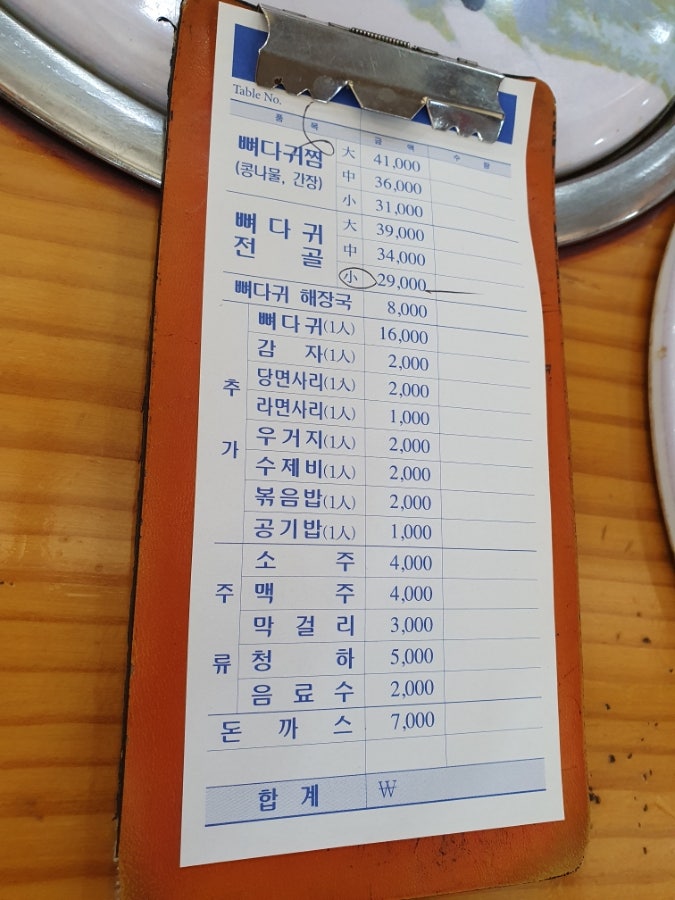 Table No.
품 목 금 액 수 량
뼈다귀찜 大 41,000
(콩나물, 간장) 中 36,000
小 31,000
뼈다귀 大 39,000
전골 中 34,000
小 29,000
뼈다귀 해장국 8,000
추가
뼈다귀(1人) 16,000
감자(1人) 2,000
당면사리(1人) 2,000
라면사리(1人) 1,000
우거지(1人) 2,000
수제비(1人) 2,000
볶음밥(1人) 2,000
공기밥(1人) 1,000
주류
소주 4,000
맥주 4,000
막걸리 3,000
청하 5,000
음료수 2,000
돈까스 7,000
합계 ₩